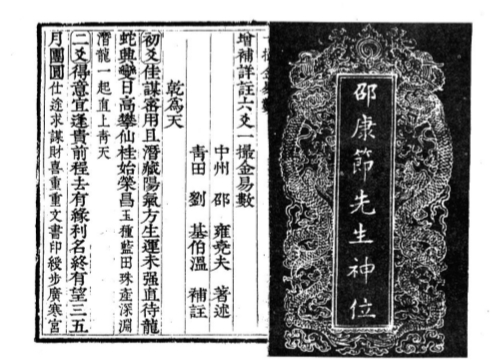 邵康節先生神位
撮金易數
增補詳註六爻一撮金易數
中州 邵 雍堯夫 著述
青田 劉 基伯溫 補註
乾為天
初爻佳謀審用且潛藏陽氣方生運未强直待龍
蛇興變日高攀仙桂始榮昌玉種藍田珠產深淵
潛龍一起直上青天
二爻得意宜逢貴前程去有緣利名終有望三五
月團圓仕途求謀財喜重重文書印綬步廣寒宮